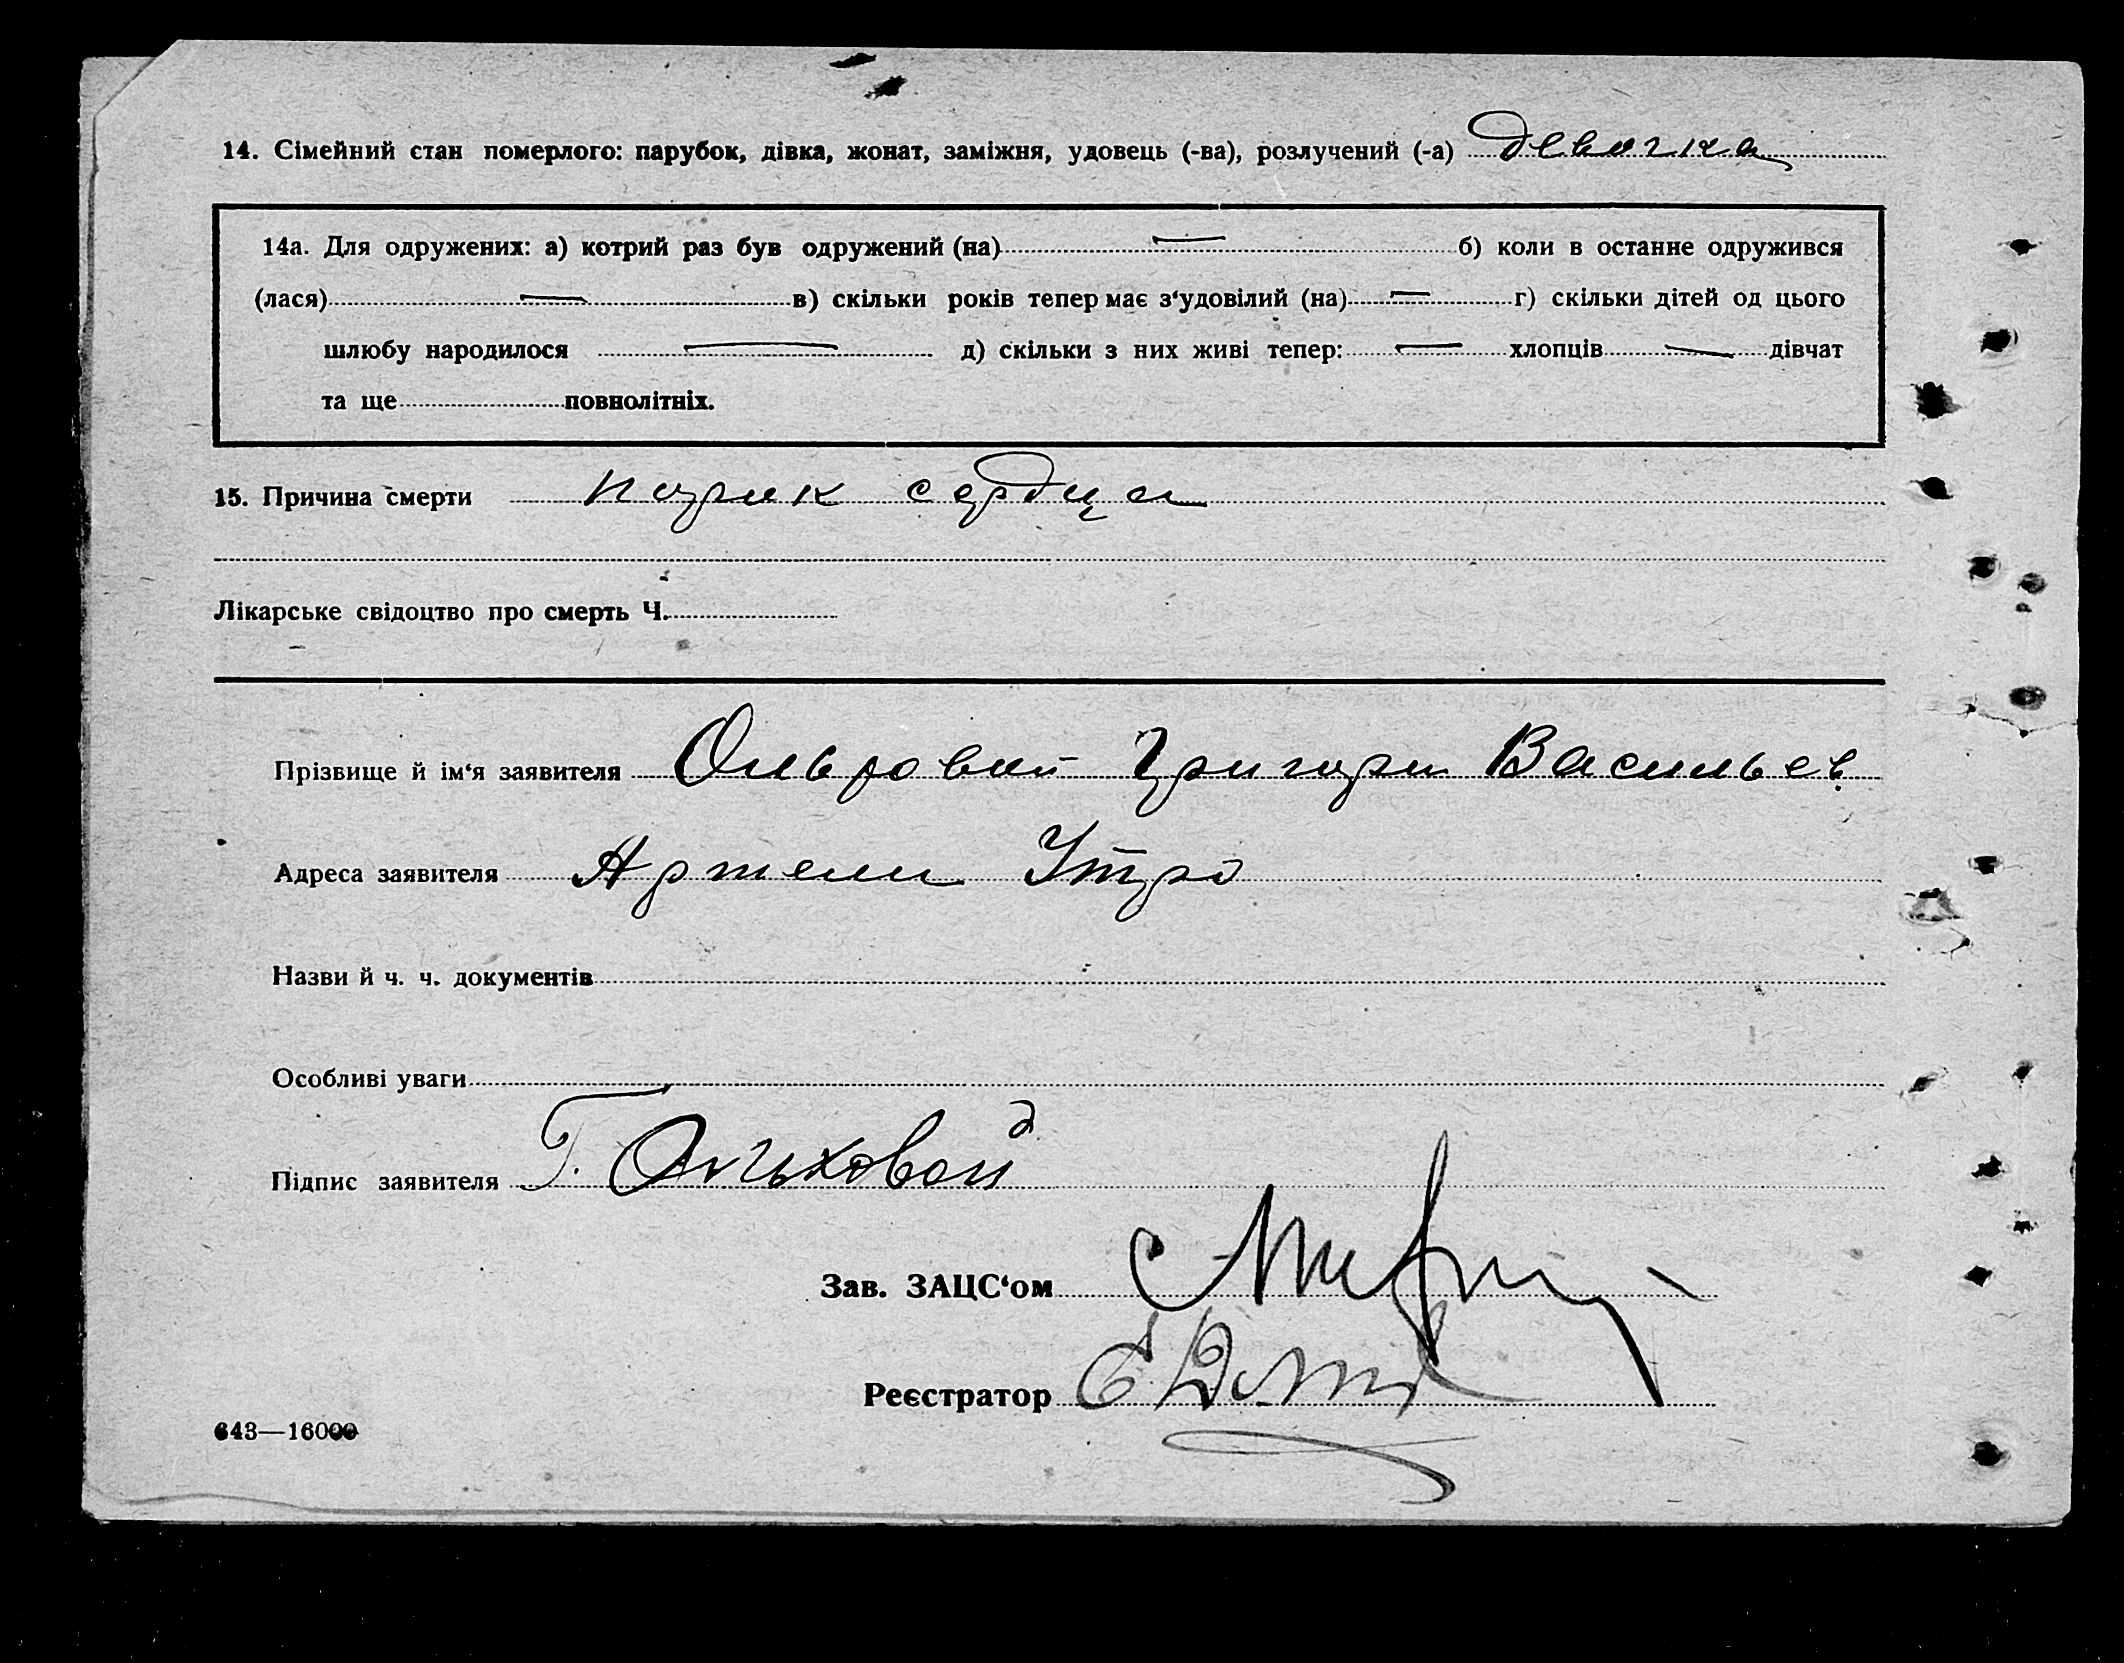 14. Сімейний стан померлого: парубок, дівка, жонат, заміжня, удовець (-ва), розлучений (-а) девочка
14а. Для одружених: а) котрий раз був одружений (на) — б) коли в останне одружився
(лася) — в) скільки років тепер має з‘удовілий (на) — г) скільки дітей од цього
шлюбу народилося — д) скільки з них живі тепер: — хлопців — дівчат
та ще повнолітніх.
15. Причина смерти порок сердца
Лікарське свідоцтво про смерть Ч.
Прізвище й ім‘я заявителя Григори Васильев.
Адреса заявителя Артели Утро
Назви й ч. ч. документів
Особливі уваги
Підпис заявителя Г. Ольховой
Зав. ЗАЦС‘ом
Реєстратор
643—16000